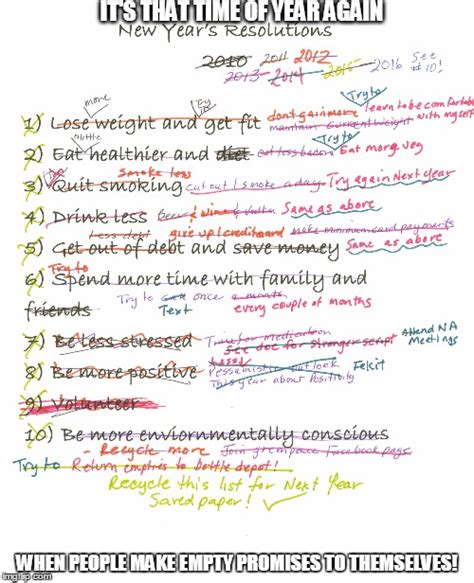 IT'S THAT TIME OF YEAR AGAIN
New Year's Resolutions
2010 2011 2012
2013 2014 2015 2016 See #10!
more Try to Try to learn to be comfortable
1) Lose weight and get fit don't gain more with myself
maintain current weight
little Try to
2) Eat healthier and diet eat less bacon Eat more veg
Smoke less
3) Quit smoking cut out 1 smoke a day Try again Next Year
4) Drink less Beer & Wine & Vodka Same as above
Less debt give up 1 credit card make minimum card payments
5) Get out of debt and save money Same as above
Try to
6) Spend more time with family and
friends Try to call once a month
Text every couple of months
7) Be less stressed Time for medication Attend NA Meetings
See doc for stronger script
8) Be more positive Less Pessimistic outlook
This year about Positivity
9) Volunteer
10) Be more enviornmentally conscious
- Recycle more Join greenpeace Facebook page
Try to Return empties to bottle depot!
Recycle this list for Next Year
Saved paper!
WHEN PEOPLE MAKE EMPTY PROMISES TO THEMSELVES!
imgflip.com